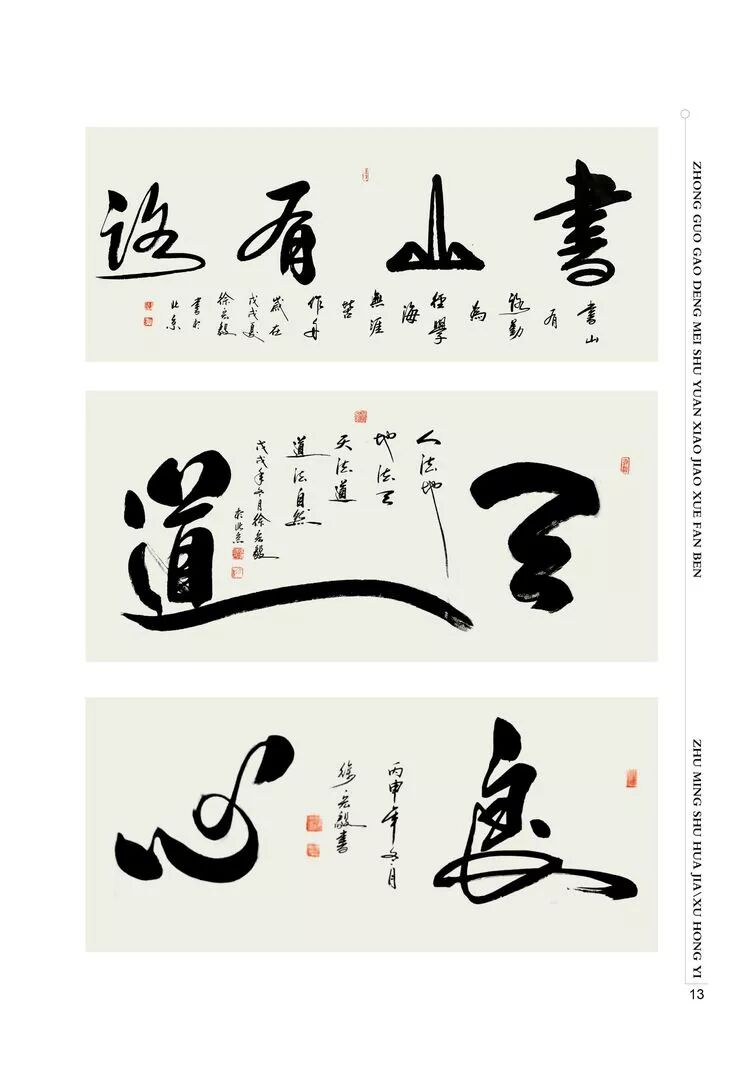 書山有路
書山
有
路勤
為
徑學
海
無涯
苦
作舟
歲在
戊戌夏
徐宏毅
書於
北京
天道
人法地
地法天
天法道
道法自然
戊戌年冬月徐宏毅
於北京
良心
丙申年冬月
徐宏毅書
ZHONG GUO GAO DENG MEI SHU YUAN XIAO JIAO XUE FAN BEN
ZHU MING SHU HUA JIA\XU HONG YI
13